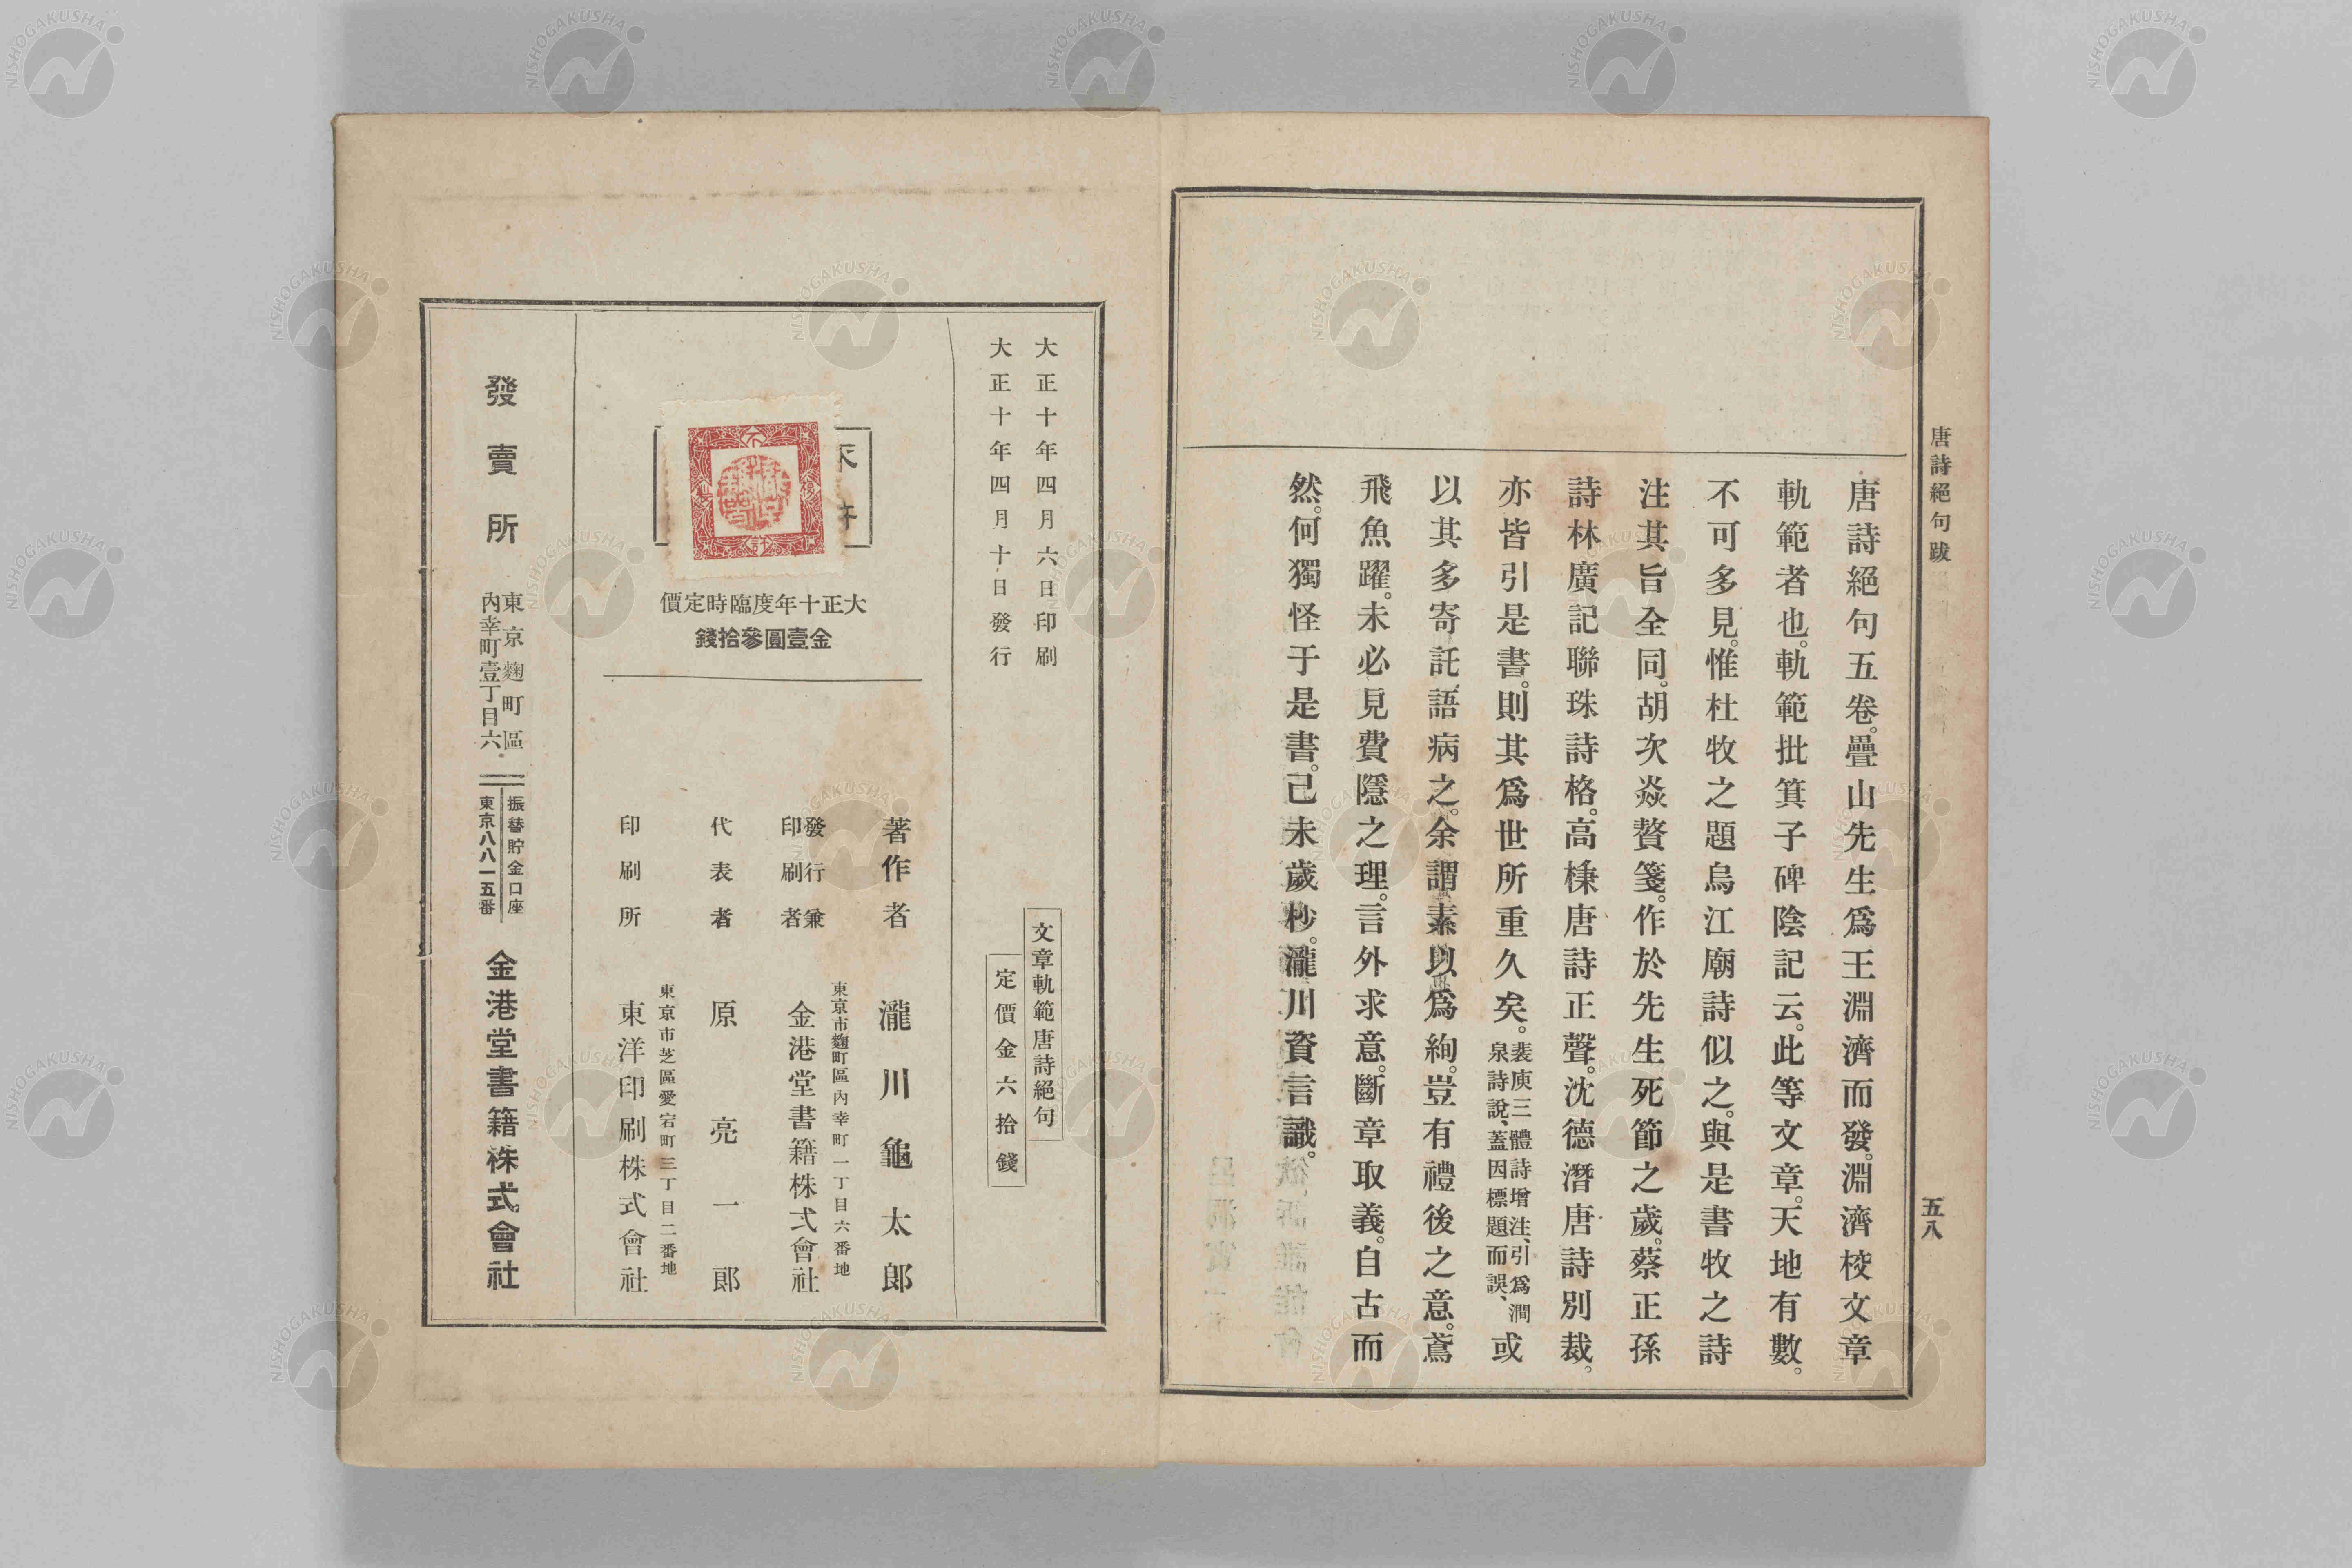 唐詩絕句跋
五八
唐詩絕句五卷。疊山先生爲王淵濟而發。淵濟校文章
軌範者也。軌範批箕子碑陰記云。此等文章。天地有數。
不可多見。惟杜牧之題烏江廟詩似之。與是書牧之詩
注其旨全同。胡次焱贅箋。作於先生死節之歲。蔡正孫
詩林廣記聯珠詩格。高棅唐詩正聲。沈德潛唐詩別裁。
亦皆引是書。則其爲世所重久矣。裴庾三體詩增注、引爲澗泉詩說、蓋因標題而誤、或
以其多寄託語病之。余謂素以爲絢。豈有禮後之意。鳶
飛魚躍。未必見費隱之理。言外求意。斷章取義。自古而
然。何獨怪于是書。己未歲杪。瀧川資言識。
大正十年四月六日印刷
大正十年四月十日發行
文章軌範唐詩絕句
定價金六拾錢
大正十年度臨時定價
金壹圓參拾錢
著作者 瀧川龜太郎
東京市麴町區內幸町一丁目六番地
發行兼印刷者 金港堂書籍株式會社
代表者 原亮一郎
東京市芝區愛宕町三丁目二番地
印刷所 東洋印刷株式會社
發賣所
東京麴町區
內幸町壹丁目六
振替貯金口座
東京八八一五番
金港堂書籍株式會社
NISHOGAKUSHA